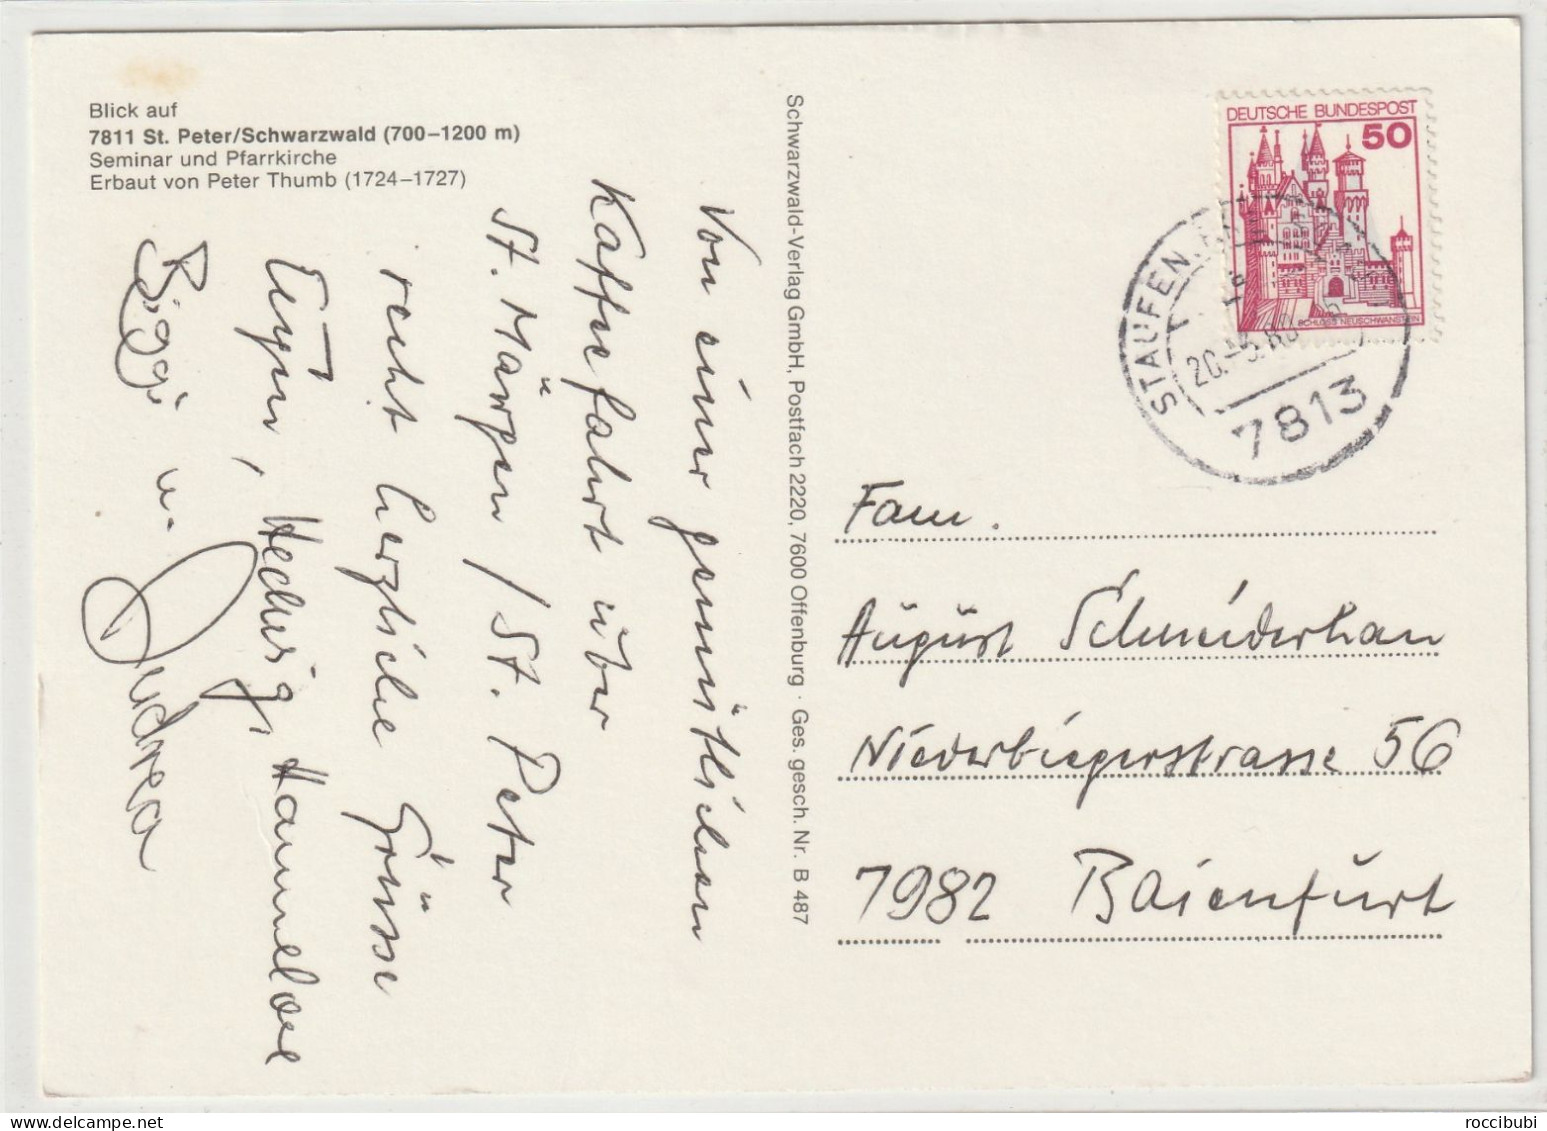 Blick auf
7811 St. Peter/Schwarzwald (700–1200 m)
Seminar und Pfarrkirche
Erbaut von Peter Thumb (1724–1727)
Von einer gemütlichen
Kaffeefahrt über
St. Märgen / St. Peter
recht herzliche Grüsse
Eugen, Hedwig, Hannelore
Biggi u.
Andrea
Schwarzwald-Verlag GmbH, Postfach 2220, 7600 Offenburg · Ges. gesch. Nr. B 487
DEUTSCHE BUNDESPOST
50
SCHLOSS NEUSCHWANSTEIN
STAUFEN
20.-5.80
7813
Fam.
August Schneiderhan
Niederbiegerstrasse 56
7982 Baienfurt
roccibubi